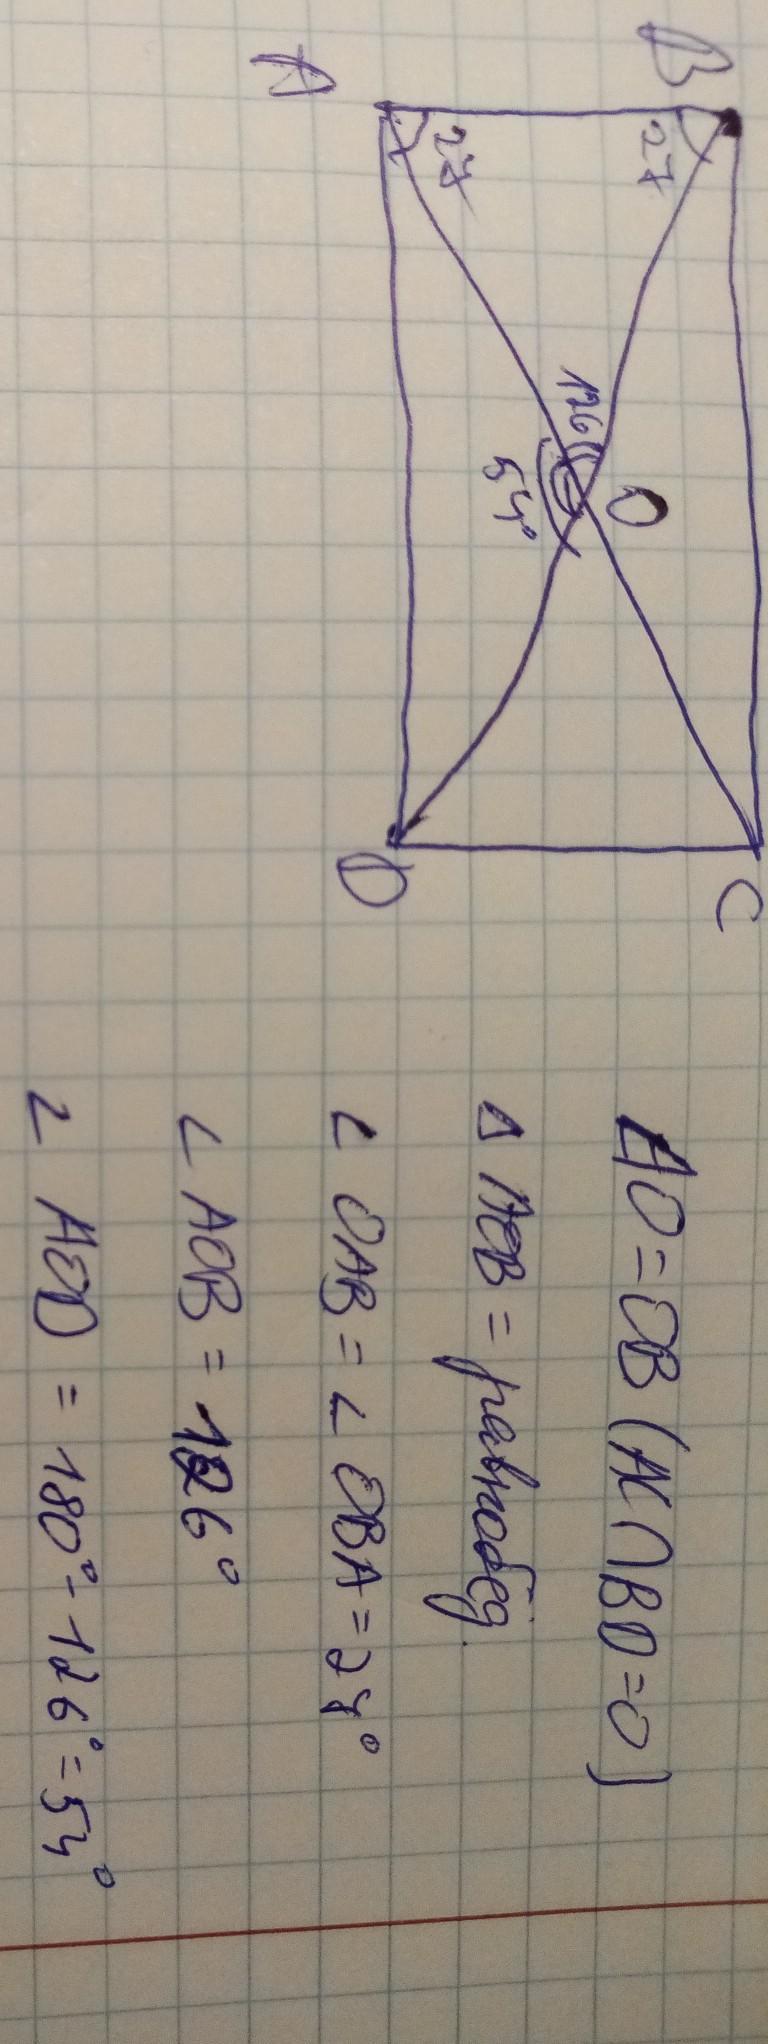 B
C
27
O
126
54°
27
A
D
AO = OB (AC ∩ BD = O)
Δ AOB = равнобед.
∠ OAB = ∠ OBA = 27°
∠ AOB = 126°
∠ AOD = 180° - 126° = 54°